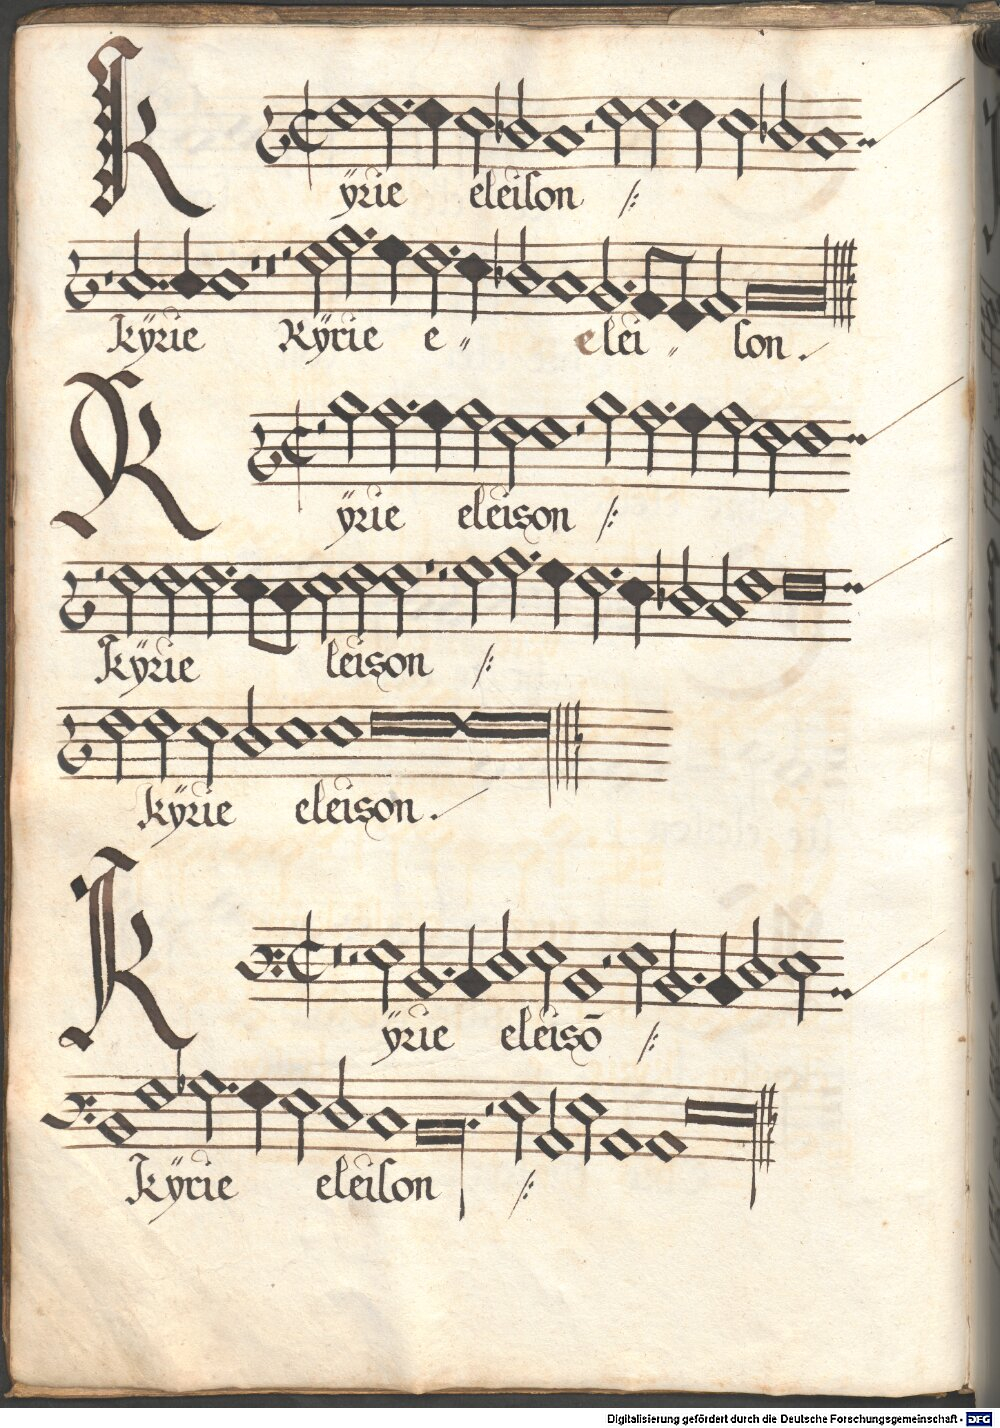 Kÿrie eleison /:
kÿrie Kÿrie e „ elei „ son .
Kÿrie eleison /:
kÿrie leison /:
kÿrie eleison .
Kÿrie eleisō /:
kÿrie eleison /:
Digitalisierung gefördert durch die Deutsche Forschungsgemeinschaft - DFG